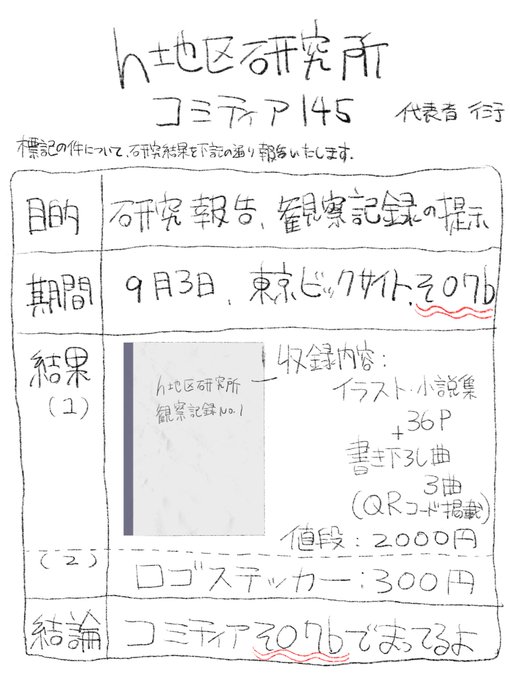 h地区研究所
コミティア145
代表者 衍
標記の件について、研究結果を下記の通り報告いたします.
目的
研究報告、観察記録の提示
期間
9月3日、東京ビックサイト、そ07b
結果
(1)
h地区研究所
観察記録No.1
収録内容:
イラスト・小説集
36P
+
書き下ろし曲
3曲
(QRコード掲載)
値段:2000円
(2)
ロゴステッカー:300円
結論
コミティアそ07bでまってるよ